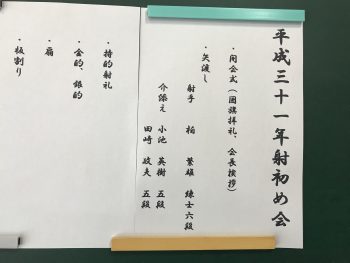 平成三十一年射初め会
・開会式（国旗拝礼、会長挨拶）
・矢渡し
射手　柏　繁雄　錬士六段
介添え　小池　英樹　五段
田崎　政夫　五段
・持的射礼
・金的、銀的
・扇
・板割り